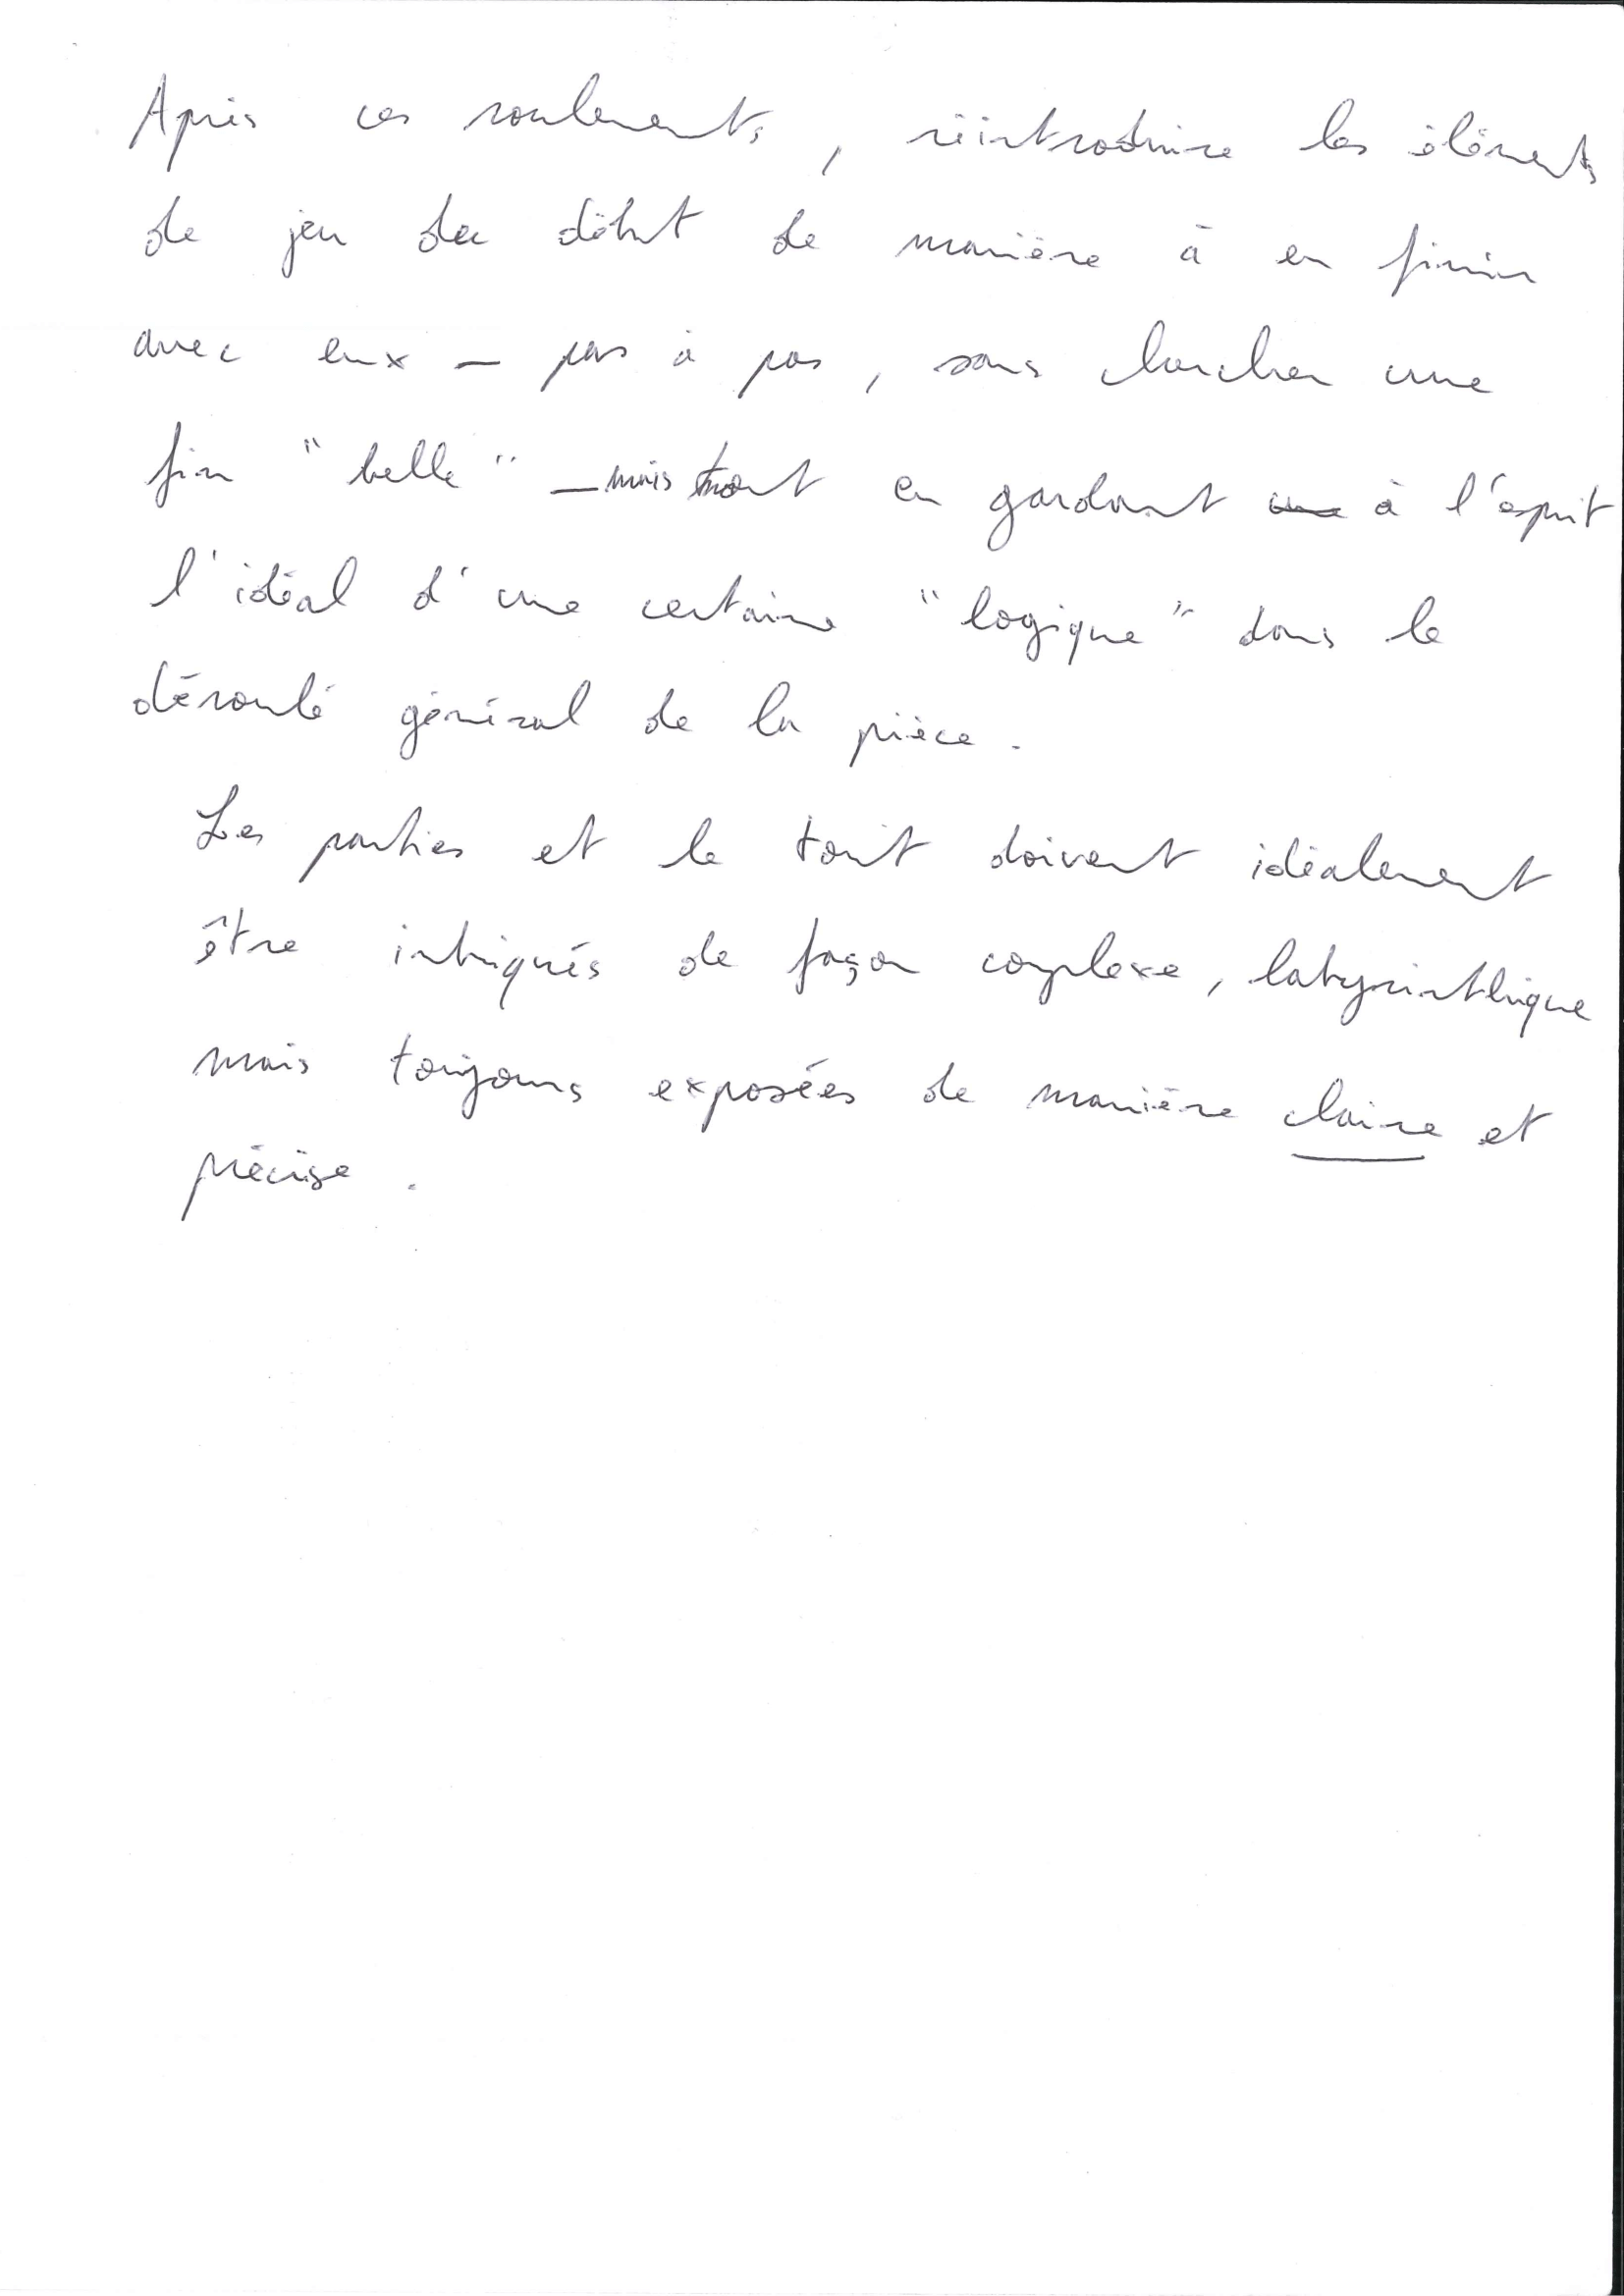 Après ces roulements, réintroduire les éléments
de jeu du début de manière à en finir
avec eux – pas à pas, sans chercher une
fin "belle" – mais tout en gardant à l'esprit
l'idéal d'une certaine "logique" dans le
déroulé général de la pièce.
Les parties et le tout doivent idéalement
être intriqués de façon complexe, labyrinthique
mais toujours exposées de manière claire et
précise.